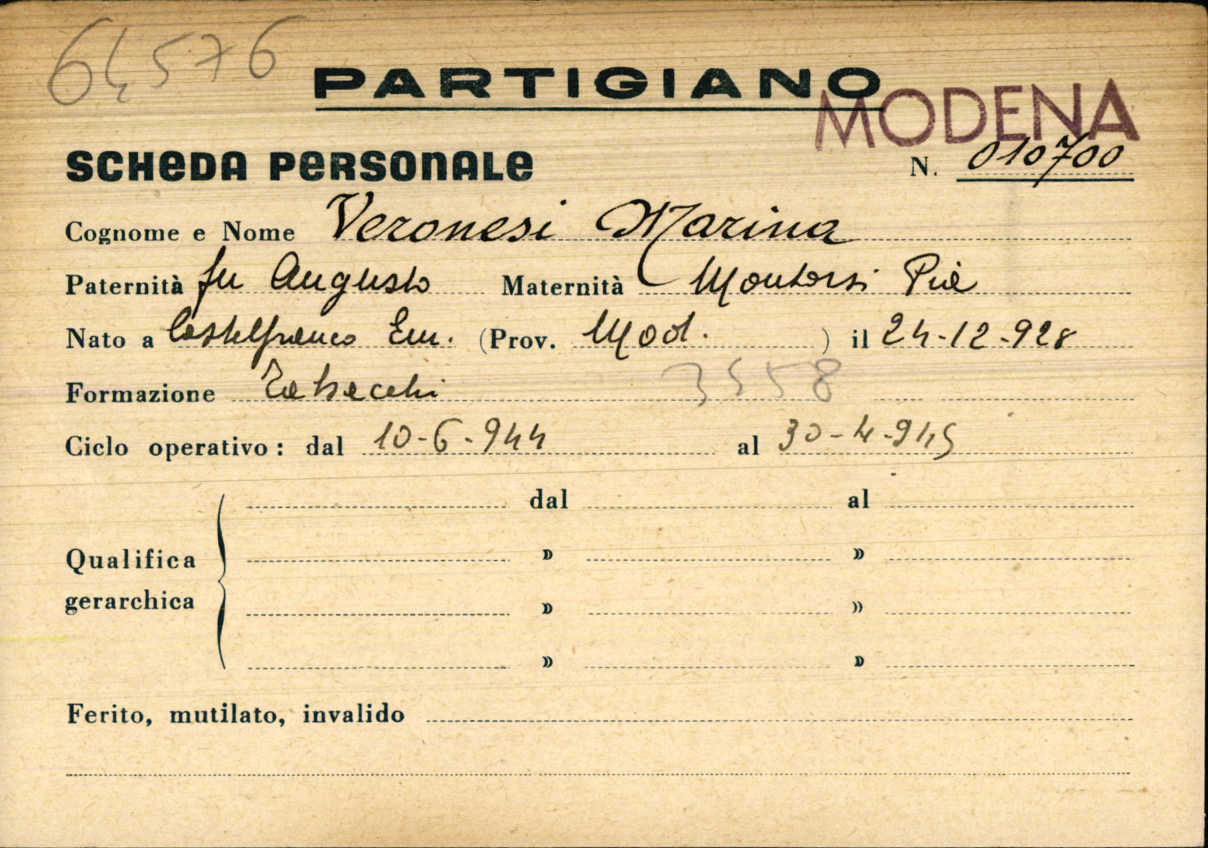 64576
PARTIGIANO
MODENA
SCHEDA PERSONALE
N. 010700
Cognome e Nome Veronesi Marina
Paternità fu Augusto Maternità Montorsi Pia
Nato a Castelfranco Em. (Prov. Mod. ) il 24-12-928
Formazione
3558
Ciclo operativo: dal 10-6-944 al 30-4-945
dal al
Qualifica » »
gerarchica » »
» »
Ferito, mutilato, invalido